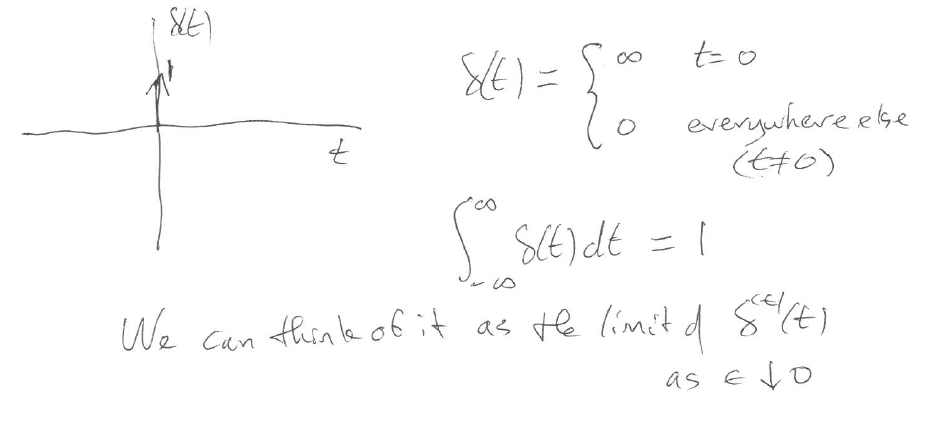 δ(t)
1
t
δ(t) = { ∞ t=0
0 everywhere else
(t≠0)
∫_{-∞}^{∞} δ(t) dt = 1
We can think of it as the limit of δ^{(ε)}(t)
as ε ↓ 0